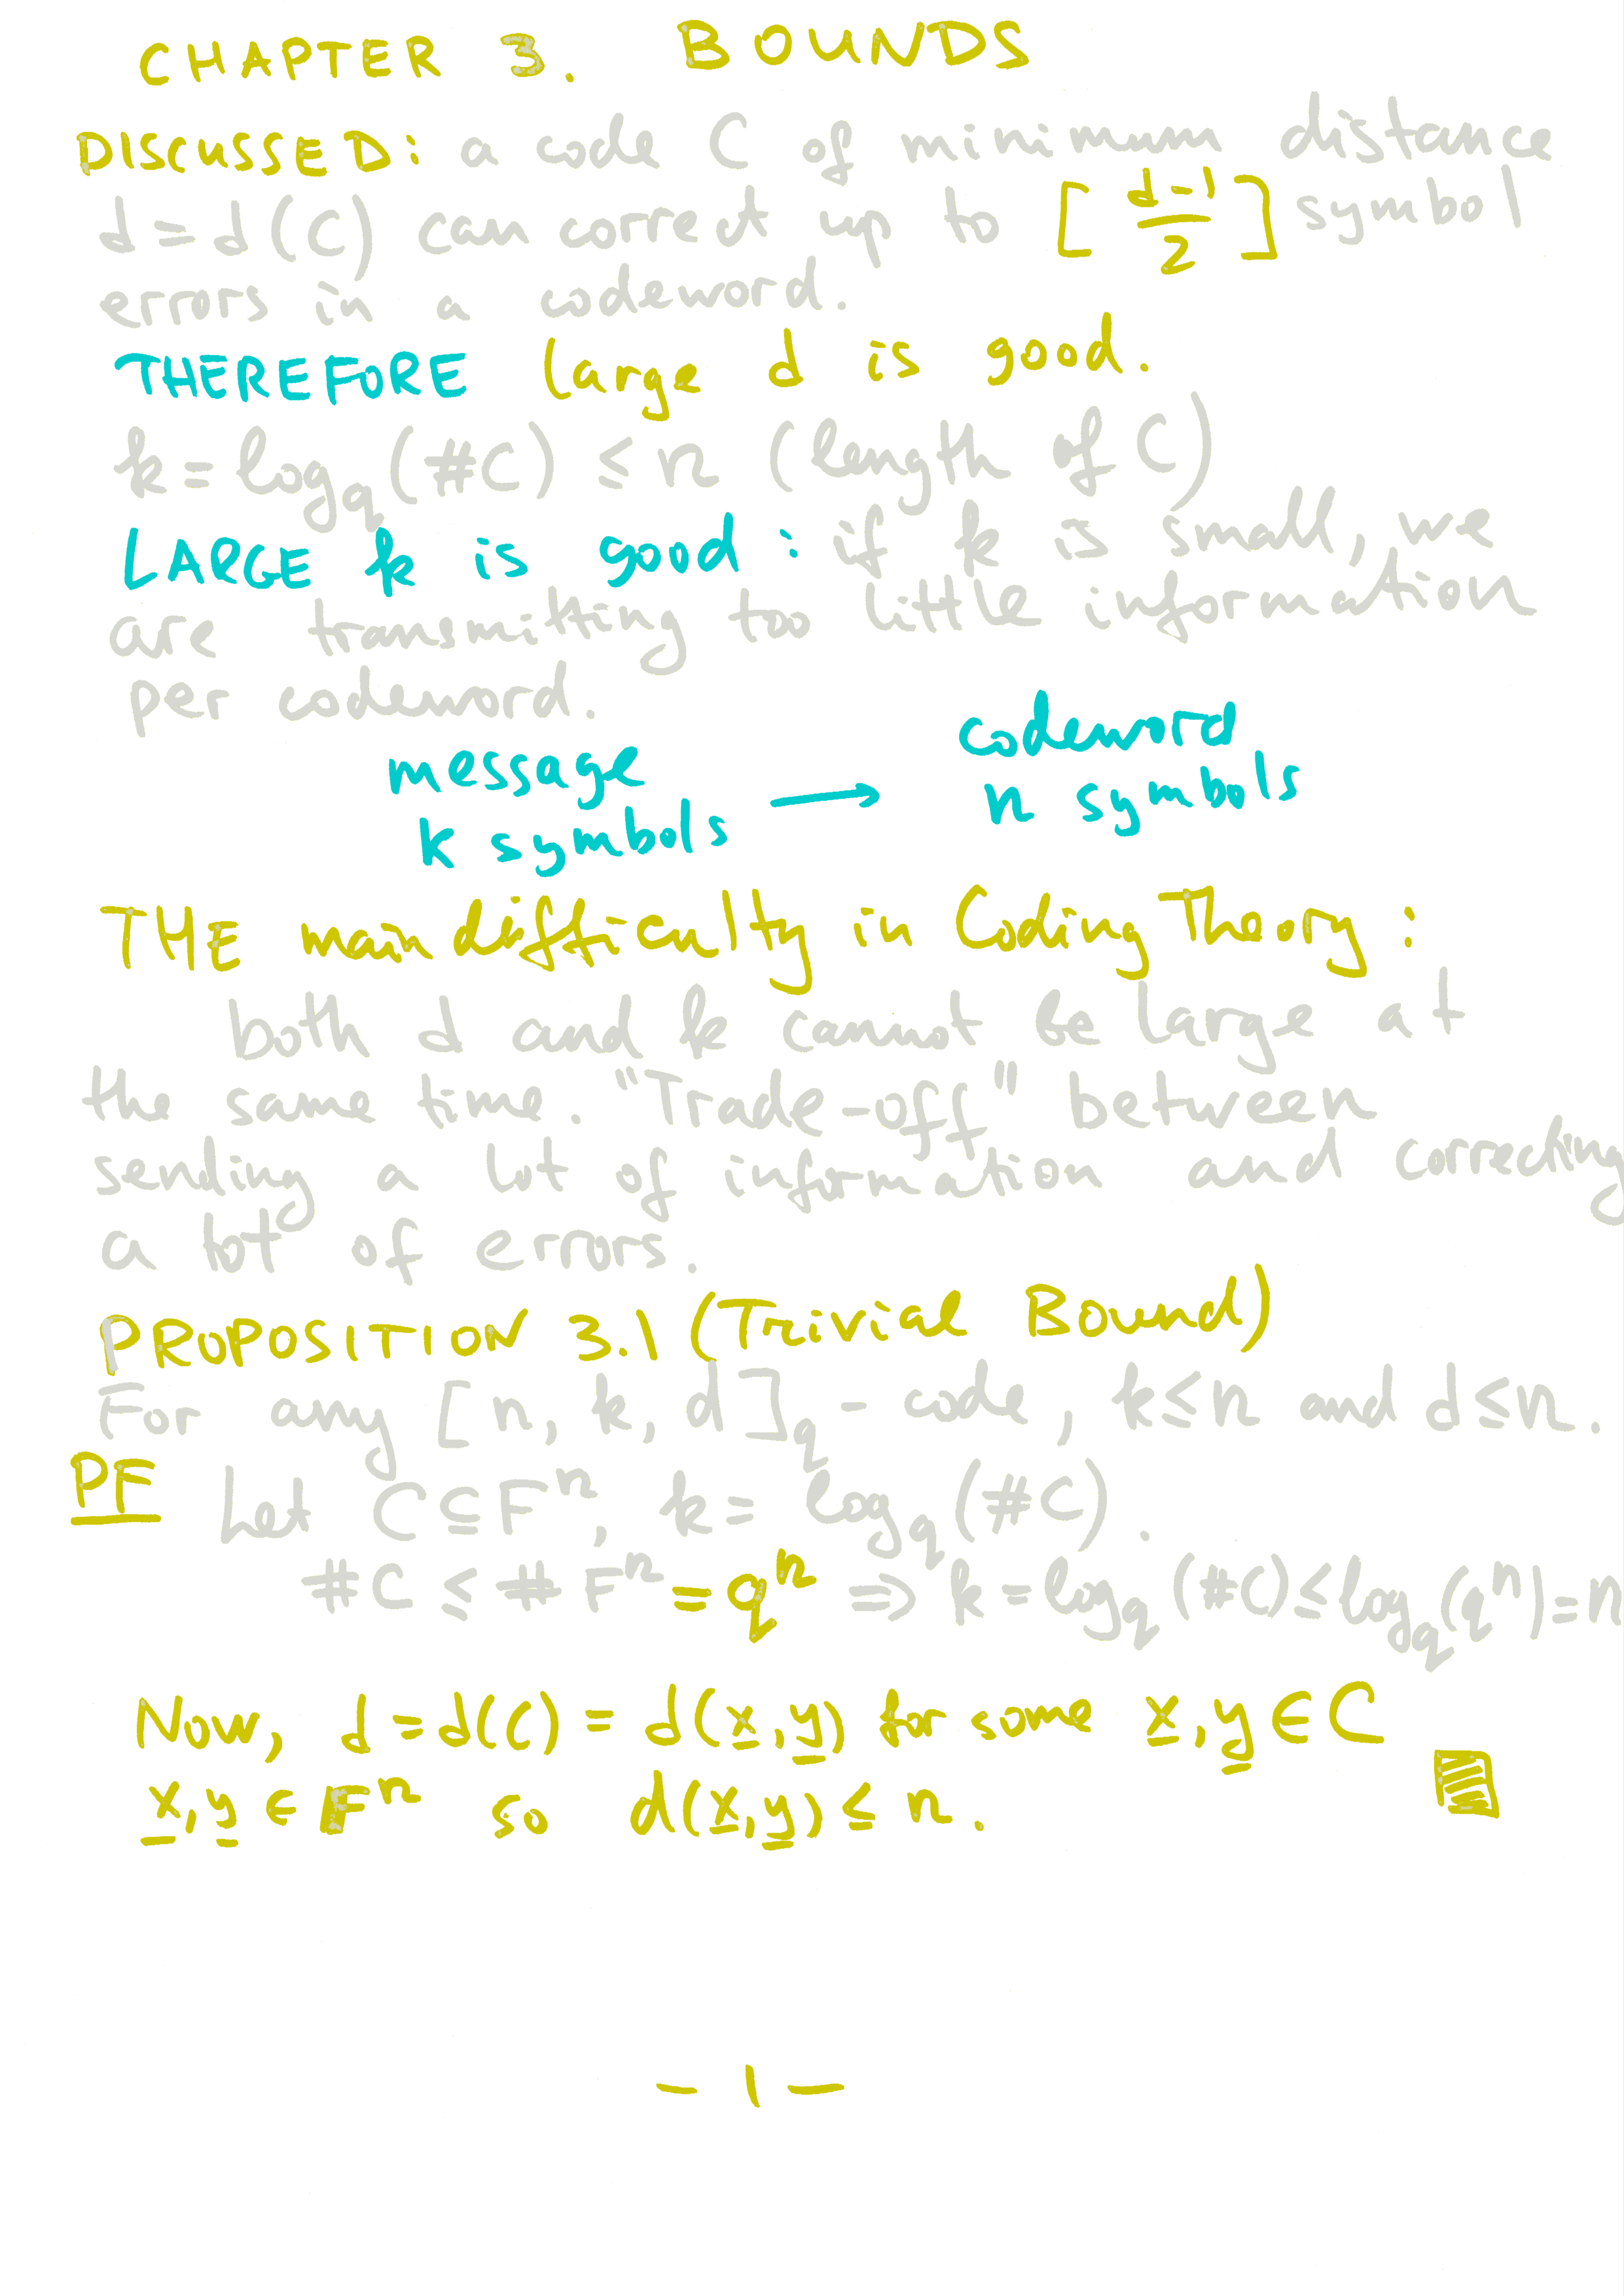 CHAPTER 3. BOUNDS
DISCUSSED: a code C of minimum distance
d = d(C) can correct up to [ (d-1)/2 ] symbol
errors in a codeword.
THEREFORE large d is good.
k = log_q (#C) ≤ n (length of C)
LARGE k is good : if k is small, we
are transmitting too little information
per codeword.
message → codeword
k symbols n symbols
THE main difficulty in Coding Theory :
both d and k cannot be large at
the same time. "Trade-off" between
sending a lot of information and correcting
a lot of errors.
PROPOSITION 3.1 (Trivial Bound)
For any [n, k, d]_q - code, k ≤ n and d ≤ n.
PF Let C ⊆ F^n, k = log_q (#C).
#C ≤ #F^n = q^n ⇒ k = log_q (#C) ≤ log_q (q^n) = n
Now, d = d(C) = d(x, y) for some x, y ∈ C
x, y ∈ F^n so d(x, y) ≤ n.
— 1 —